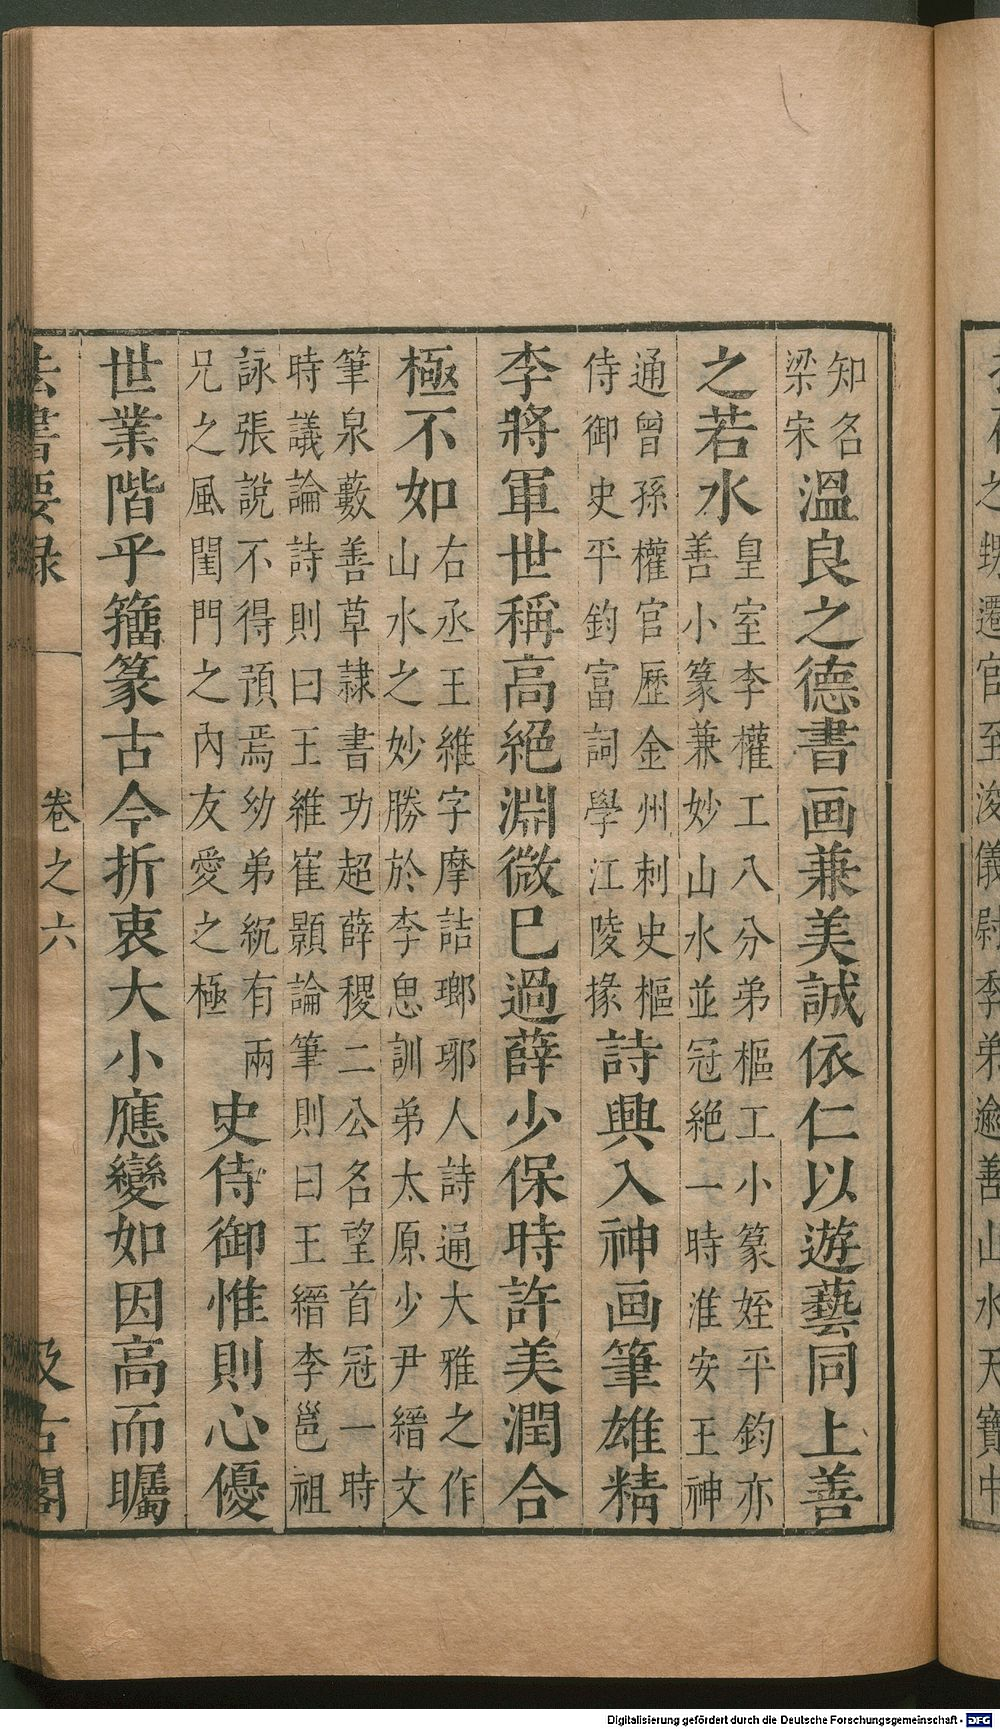 知名
梁宋
溫良之德書画兼美誠依仁以遊藝同上善
之若水
皇室李權工八分弟樞工小篆姪平鈞亦
善小篆兼妙山水並冠絕一時淮安王神
通曾孫權官歷金州刺史樞
侍御史平鈞富詞學江陵掾
詩興入神画筆雄精
李將軍世稱高絕淵微巳過薛少保時許美潤合
極不如
右丞王維字摩詰瑯琊人詩通大雅之作
山水之妙勝於李思訓弟太原少尹縉文
筆泉藪善草隷書功超薛稷二公名望首冠一時
時議論詩則曰王維崔顥論筆則曰王縉李邕祖
詠張說不得預焉幼弟紞有兩
兄之風閨門之內友愛之極
史侍御惟則心優
世業階乎籀篆古今折衷大小應變如因高而矚
法書要録
卷之六
汲古閣
之
遷官至浚儀尉季弟逾善山水天寶中
Digitalisierung gefördert durch die Deutsche Forschungsgemeinschaft - DFG